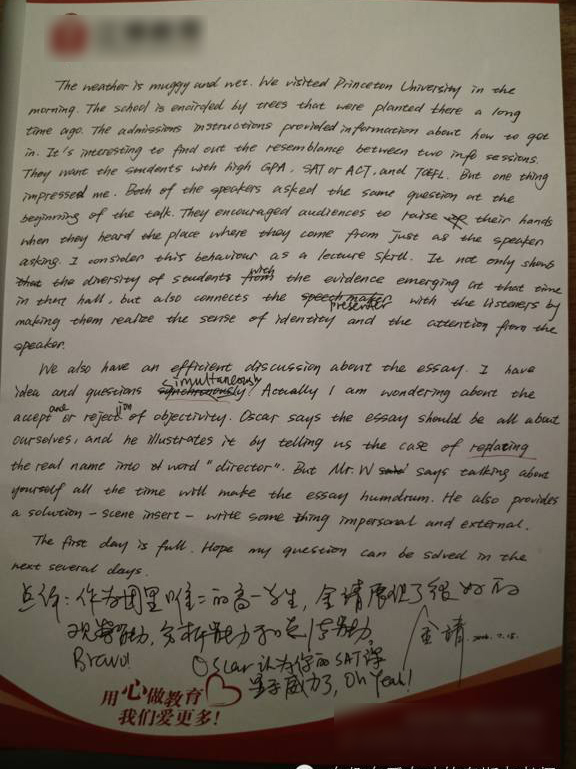 The weather is muggy and wet. We visited Princeton University in the
morning. The school is encircled by trees that were planted there a long
time ago. The admissions instructions provided information about how to get
in. It's interesting to find out the resemblance between two info sessions.
They want the students with high GPA, SAT or ACT, and TOEFL. But one thing
impressed me. Both of the speakers asked the same question at the
beginning of the talk. They encouraged audiences to raise their hands
when they heard the place where they come from just as the speaker
asking. I consider this behaviour as a lecture skill. It not only shows
that the diversity of students from with the evidence emerging at that time
in that hall, but also connects the speech maker presenter with the listeners by
making them realize the sense of identity and the attention from the
speaker.
We also have an efficient discussion about the essay. I have
idea and questions synchronously simultaneously! Actually I am wondering about the
acceptance or rejection of objectivity. Oscar says the essay should be all about
ourselves, and he illustrates it by telling us the case of replating
the real name into a word "director". But Mr. W said says talking about
yourself all the time will make the essay humdrum. He also provides
a solution - scene insert - write some thing impersonal and external.
The first day is full. Hope my question can be solved in the
next several days.
点评：作为团里唯二的高一学生，金靖展现了很好的
观察能力，分析能力和总结能力。
Bravo! Oscar认为你的SAT课
显示威力了，Oh Yeah!
金靖
用心做教育
我们爱更多！